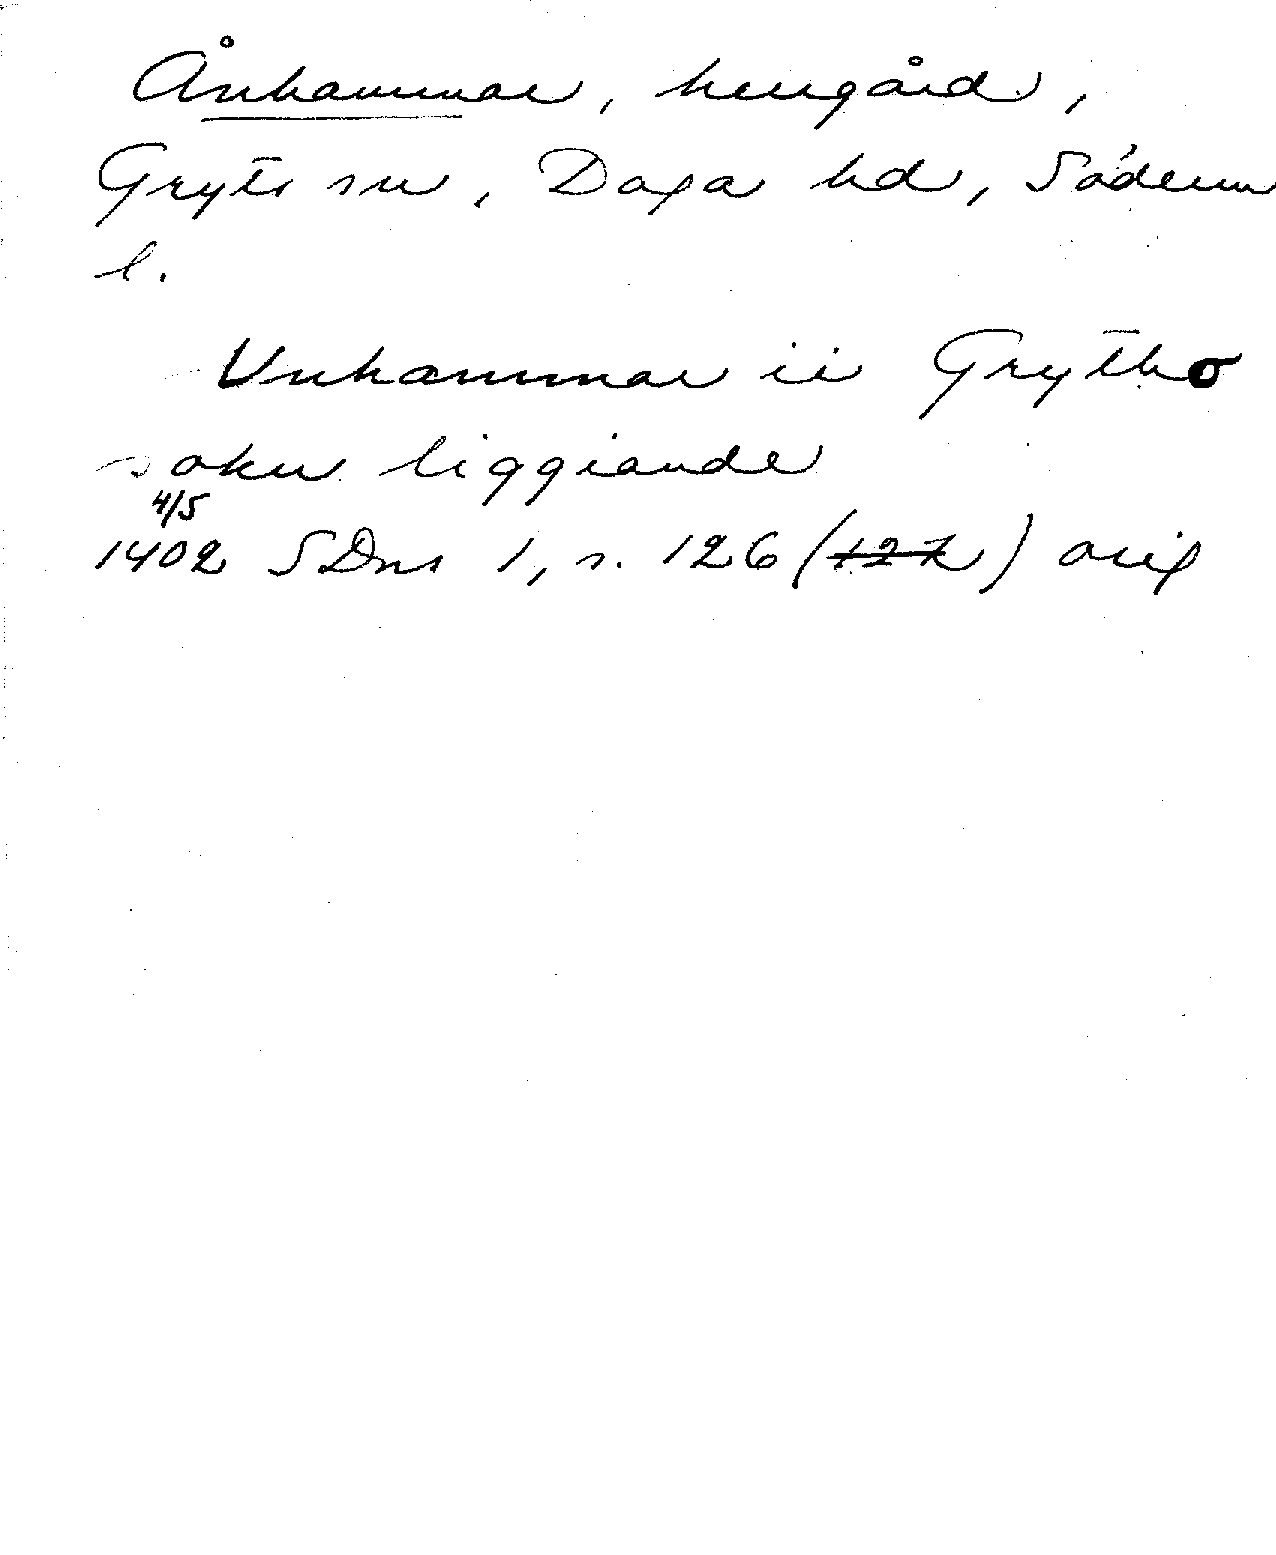 Ånhammar, herrgård,
Gryts sn, Daga hd, Söderm
l.
Vnhammar ii Grytho
sokn liggiande
4/5
1402 SDns 1, s. 126 (127) orig